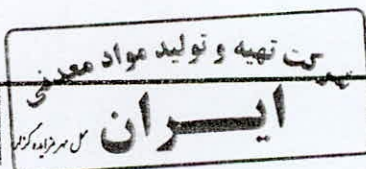 شرکت تهیه و تولید مواد معدنی
ایران
محل مهر مزایده گزار